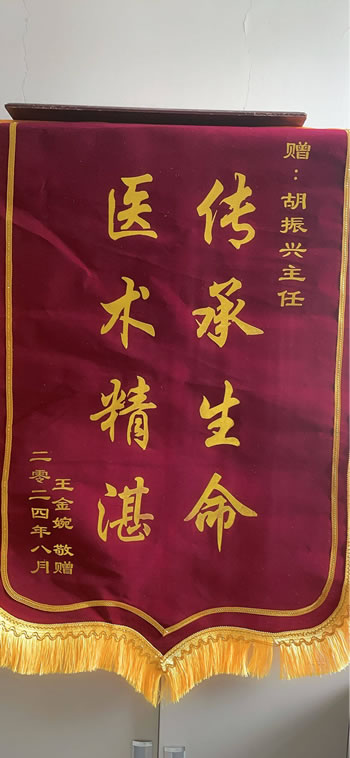 赠：胡振兴主任
传承生命
医术精湛
王金婉 敬赠
二零二四年八月